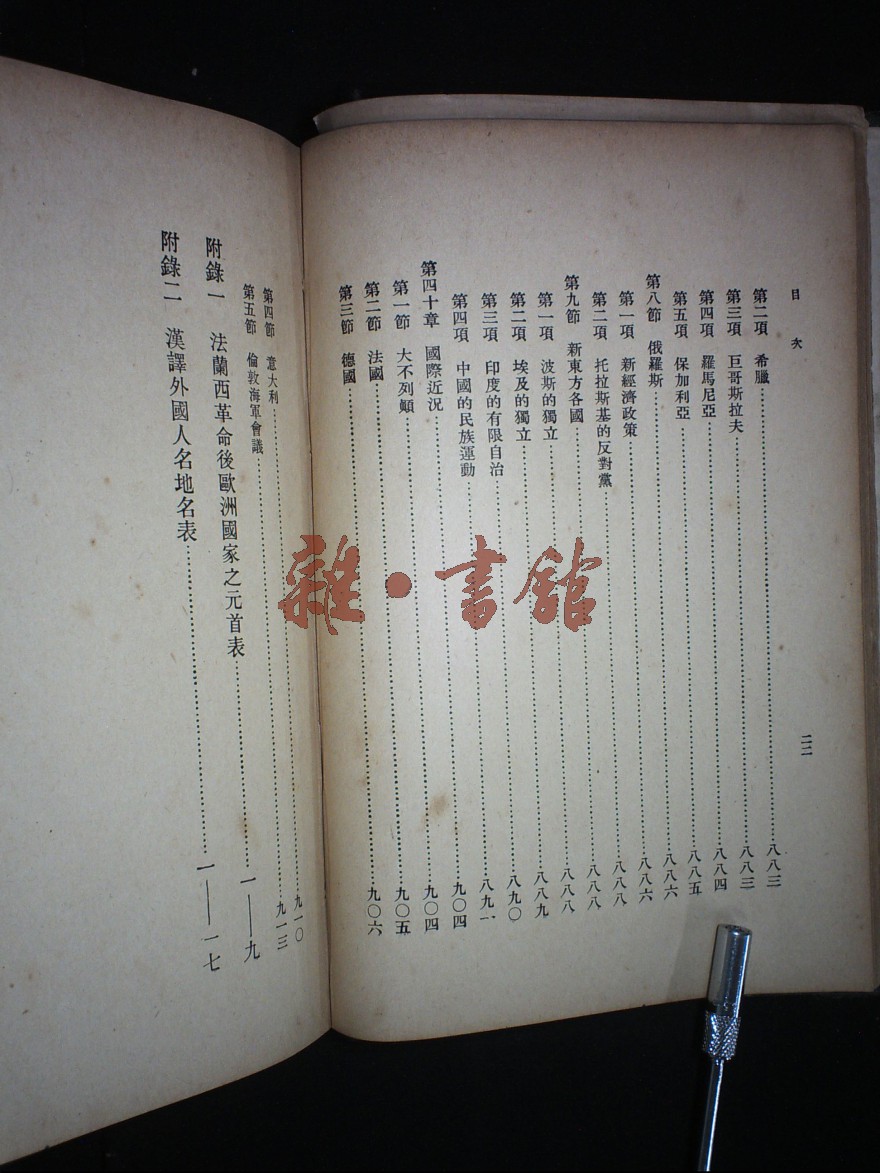 目次
二二
第二項 希臘……八八三
第三項 巨哥斯拉夫……八八三
第四項 羅馬尼亞……八八四
第五項 保加利亞……八八五
第八節 俄羅斯……八八六
第一項 新經濟政策……八八六
第二項 托拉斯基的反對黨……八八八
第九節 新東方各國……八八八
第一項 波斯的獨立……八八八
第二項 埃及的獨立……八八九
第三項 印度的有限自治……八九〇
第四項 中國的民族運動……八九一
第四十章 國際近況……九〇四
第一節 大不列顛……九〇四
第二節 法國……九〇五
第三節 德國……九〇六
第四節 意大利……九一〇
第五節 倫敦海軍會議……九一三
附錄一 法蘭西革命後歐洲國家之元首表……一——九
附錄二 漢譯外國人名地名表……一——一七
雜·書館